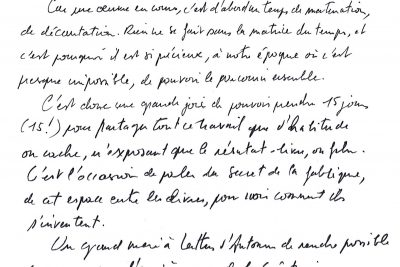 Car une œuvre en cours, c'est d'abord un temps de maturation,
de décantation. Rien ne se fait sans la matrice du temps, et
c'est pourquoi il est si précieux, à notre époque où c'est
presque impossible, de pouvoir le parcourir ensemble.
C'est donc une grande joie de pouvoir prendre 15 jours
(15!) pour partager tout ce travail que d'habitude
on cache, n'exposant que le résultat - livre, ou film.
C'est l'occasion de parler du secret de la fabrique,
de cet espace entre les livres, pour voir comment ils
s'inventent.
Un grand merci à Lettres d'Automne de rendre possible